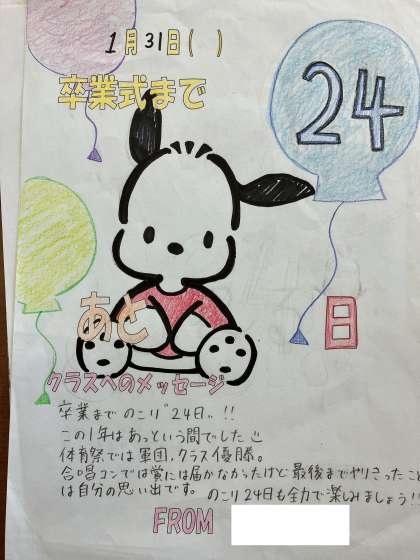 1月31日( )
卒業式まで
24
あと
日
クラスへのメッセージ
卒業まで のこり"24日"!!
この1年はあっという間でした
体育祭では軍団、クラス優勝。
合唱コンでは賞には届かなかったけど最後までやりきったこと
は自分の思い出です。 のこり24日も全力で楽しみましょう!!
FROM